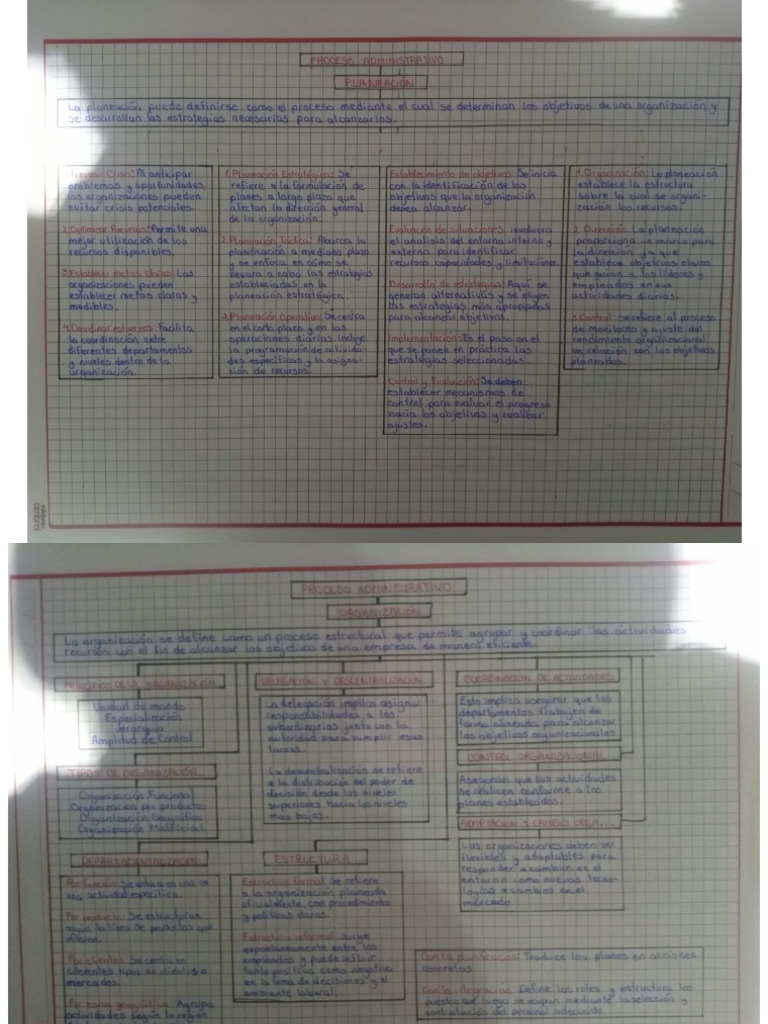 PROCESO ADMINISTRATIVO
PLANEACIÓN
La planeación puede definirse como el proceso mediante el cual se determinan los objetivos de una organización y
se desarrollan las estrategias necesarias para alcanzarlos.
Prevenir Crisis: Al anticipar
problemas y oportunidades,
las organizaciones pueden
evitar crisis potenciales.
2. Optimizar Recursos: Permite una
mejor utilización de los
recursos disponibles.
3. Establece metas claras: Las
organizaciones pueden
establecer metas claras y
medibles.
4. Coordinar esfuerzos: Facilita
la coordinación entre
diferentes departamentos
y niveles dentro de la
organización.
1. Planeación Estratégica: Se
refiere a la formulación de
planes a largo plazo que
afectan la dirección general
de la organización.
2. Planeación Táctica: Abarca la
planificación a mediano plazo
y se enfoca en cómo se
llevara a cabo las estrategias
establecidas en la
planeación estratégica.
Planeación Operativa: Se centra
en el corto plazo y en las
operaciones diarias. Incluye
la programación de activida-
des específicas y la asigna-
sión de recursos.
Establecimiento de objetivos: Se inicia
con la identificación de los
objetivos que la organización
desea alcanzar.
Evaluación de situaciones: involucra
el analisis del entorno interno y
externo para identificar
recursos, capacidades y limitaciónes.
Desarrollo de estrategias: Aquí se
generan alternativas y se eligen
las estrategias más apropiadas
para alcanzar objetivos.
Implementación: Es el paso en el
que se ponen en práctica las
estrategias seleccionadas.
Control y Evaluación: Se deben
establecer mecanismos de
control para evaluar el progreso
hacia los objetivos y realizar
ajustes.
1. Organización: La planeación
establece la estructura
sobre la cual se organi-
zación los recursos.
2. Dirección: La planeación
proporciona un marco para
la dirección, ya que
establece objetivos claros
que guían a los líderes y
empleados en sus
actividades diarias.
3. Control: Se refiere al proceso
de monitoreo y ajuste del
rendimiento organizacional
en relación con los objetivos
planeados.
PROCESO ADMINISTRATIVO
ORGANIZACIÓN
La organización se define como un proceso estructural que permite agrupar y coordinar las actividades
recursos con el fin de alcanzar los objetivos de una empresa de manera eficiente.
PRINCIPIOS DE LA ORGANIZACIÓN
Unidad de mando
Especialización
Jerarquía
Amplitud de Control
TIPOS DE ORGANIZACIÓN
Organización Funcional
Organización por productos
Organización Geográfica
Organización Matricial
DEPARTAMENTALIZACIÓN
Por Función: Se
una actividad específica.
Por producto: Se estructuran
según la línea de productos que
ofrecen.
Por clientes: Se centra en
diferentes tipos de clientes o
mercados.
Por zona geográfica: Agrupa
actividades según la región
DELEGACIÓN Y DESCENTRALIZACIÓN
La delegación implica asignar
responsabilidades a los
subordinarios junto con la
autoridad para cumplir esas
tareas.
La descentralización se refiere
a la distribución del poder de
decisión desde los niveles
superiores hacia los niveles
mas bajos.
ESTRUCTURA
Estructura formal: Se refiere
a la organización planeada
oficialmente, con procedimiento
y políticas claras.
Estructura informal: Surge
espontaneamente entre los
empleados y puede influir
tanto positiva como negativa
en la toma de decisiones y el
ambiente laboral.
COORDINACIÓN DE ACTIVIDADES
Esto implica asegurar que los
departamentos trabajen de
forma alineada para alcanzar
los objetivos organizacionales
CONTROL ORGANIZACIONAL
Aseguran que las actividades
se realicen conforme a los
planes establecidos.
ADAPTACIÓN Y CAMBIO
Las organizaciones deben ser
flexibles y adaptables para
responder a cambios en el
entorno como nuevas tecno-
logías o cambios en el
mercado
Con la planificación: Traduce los planes en acciones
concretas.
Define los roles y estructura los
puestos que luego se ocupan mediante la selección y
contratación del personal adecuado